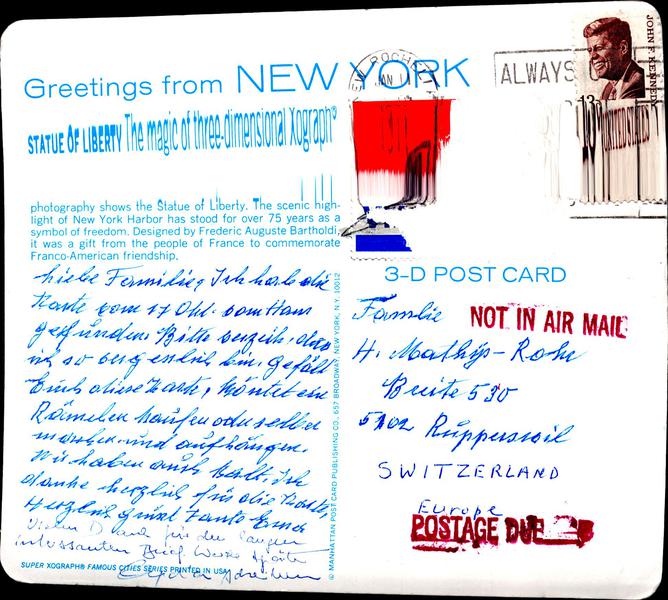 Greetings from NEW YORK
STATUE OF LIBERTY The magic of three-dimensional Xograph®
photography shows the Statue of Liberty. The scenic high-
light of New York Harbor has stood for over 75 years as a
symbol of freedom. Designed by Frederic Auguste Bartholdi,
it was a gift from the people of France to commemorate
Franco-American friendship.
Liebe Familie, Ich habe die
Karte vom 17 Okt. vom Hans
gefunden. Bitte verzeih, dass
ich so vergesslich bin. Gefällt
Euch diese Karte, könntet ein
Rämelen kaufen oder selber
machen und aufhängen.
Wir haben auch kalt. Ich
danke herzlich für die Karte,
Herzlich grüsst Tante Emma
Vielen Dank für den langen
interessanten Brief. Werde später
schreiben
SUPER XOGRAPH® FAMOUS CITIES SERIES PRINTED IN USA
© MANHATTAN POST CARD PUBLISHING CO., 657 BROADWAY, NEW YORK, N.Y. 10012
NEW ROCHELLE
JAN 11
ALWAYS
JOHN F. KENNEDY
13c
UNITED STATES
3-D POST CARD
NOT IN AIR MAIL
Familie
H. Mathys-Rohr
Breite 530
5102 Rupperswil
SWITZERLAND
Europe
POSTAGE DUE